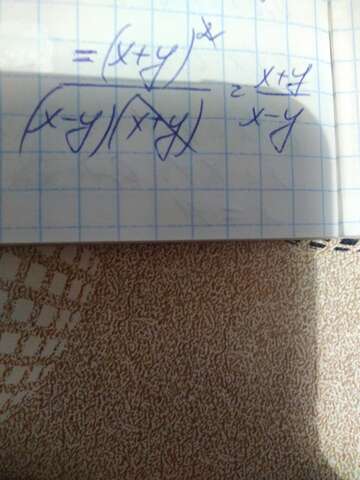 = (x+y)²
(x-y)(x+y) = x+y
x-y